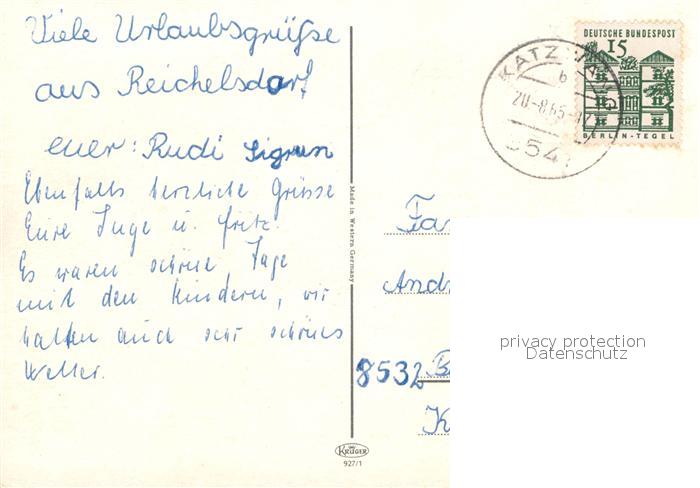 Viele Urlaubsgrüße
aus Reichelsdorf
euer: Rudi Sigrun
Ebenfalls herzliche Grüsse
Eure Inge u. Fritz.
Es waren schöne Tage
mit den Kindern, wir
hatten auch sehr schönes
Wetter.
Made in Western Germany
KRÜGER
927/1
DEUTSCHE BUNDESPOST
15
BERLIN-TEGEL
KATZWANG
b
20.-8.65
8541
Fa
Andr
8532 B
K
privacy protection
Datenschutz